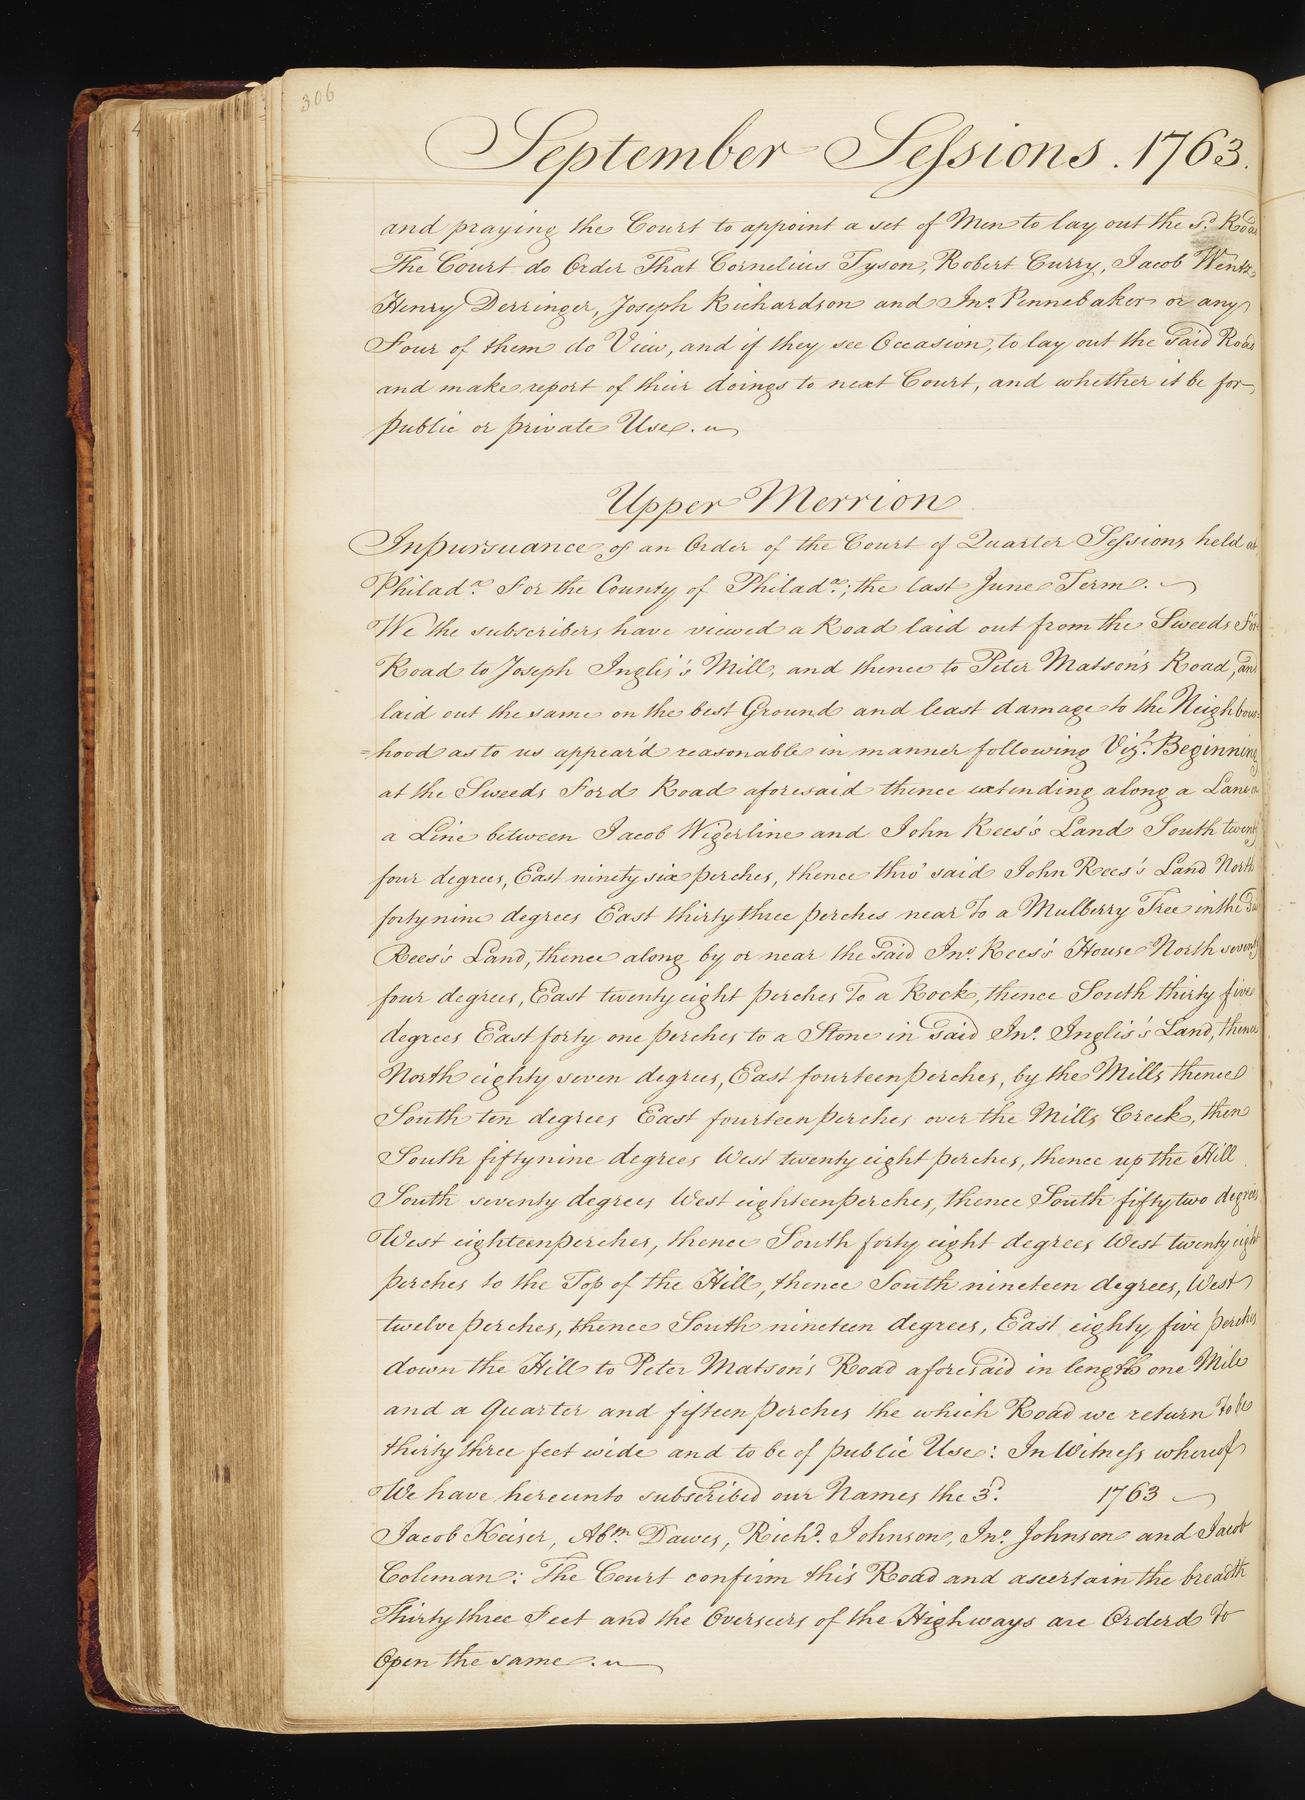 306
September Sessions. 1763.
and praying the Court to appoint a set of Men to lay out the sd. Road
The Court do Order That Cornelius Tyson, Robert Curry, Jacob Wentz
Henry Derringer, Joseph Richardson and Jno. Pennebaker or any
Four of them do View, and if they see Occasion, to lay out the said Road
and make report of their doings to next Court, and whether it be for
public or private Use.
Upper Merrion
In pursuance of an Order of the Court of Quarter Sessions held at
Philada. For the County of Philada.; the last June Term.
We the subscribers have viewed a Road laid out from the Sweeds For
Road to Joseph Inglis's Mill, and thence to Peter Matson's Road, and
laid out the same on the best Ground and least damage to the Neighbour=
=hood as to us appear'd reasonable in manner following Vizt. Beginning
at the Sweeds Ford Road aforesaid thence extending along a Lane
a Line between Jacob Wigerline and John Rees's Land South twenty
four degrees, East ninety six perches, thence thro' said John Rees's Land North
forty nine degrees East thirty three perches near to a Mulberry Tree in the
Rees's Land, thence along by or near the said Jno. Rees's House North seventy
four degrees, East twenty eight perches To a Rock, thence South thirty five
degrees East forty one perches to a Stone in said Jno. Inglis's Land, thence
North eighty seven degrees, East fourteen perches, by the Mills thence
South ten degrees East fourteen perches over the Mills Creek, then
South fifty nine degrees West twenty eight perches, thence up the Hill
South seventy degrees West eighteen perches, thence South fifty two degrees
West eighteen perches, thence South forty eight degrees West twenty eight
perches to the Top of the Hill, thence South nineteen degrees, West
twelve perches, thence South nineteen degrees, East eighty five perches
down the Hill to Peter Matson's Road aforesaid in length one Mile
and a quarter and fifteen perches the which Road we return to be
thirty three feet wide and to be of public Use: In Witness whereof
We have hereunto subscribed our Names the 3d. 1763
Jacob Keiser, Abm. Dawes, Richd. Johnson, Jno. Johnson and Jacob
Coleman: The Court confirm this Road and ascertain the breadth
Thirty three Feet and the Overseers of the Highways are Orderd to
Open the same.